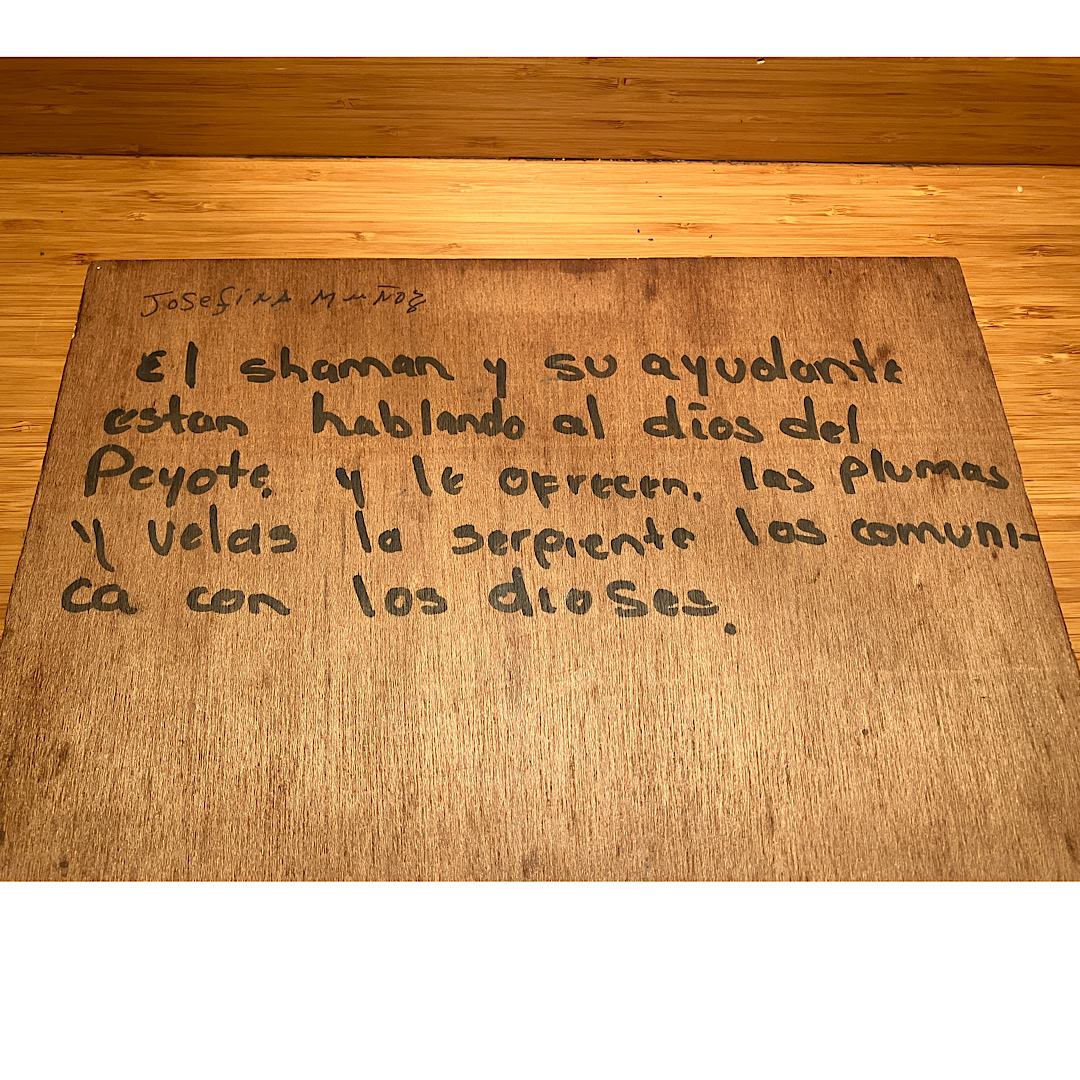 Josefina Muñoz
El shaman y su ayudante
estan hablando al dios del
Peyote. y le ofrecen. las plumas
y velas la serpiente los comuni-
ca con los dioses.